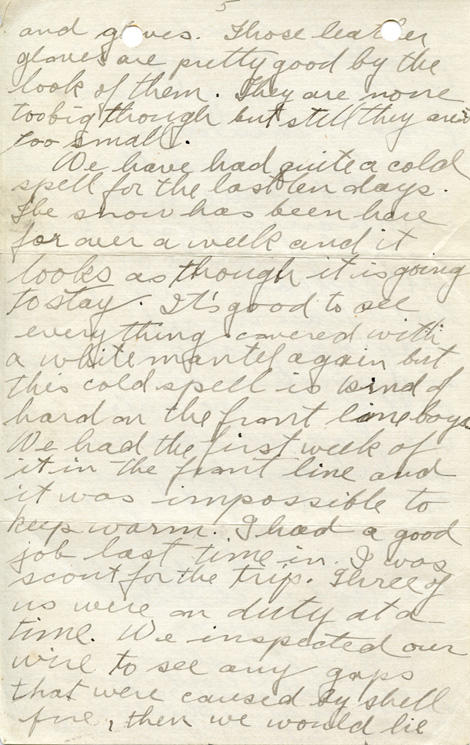 5
and gloves. Those leather
gloves are pretty good by the
look of them. They are none
too big though but still they aren't
too small.
We have had quite a cold
spell for the last ten days.
The snow has been here
for over a week and it
looks as though it is going
to stay. It's good to see
everything covered with
a white mantel again but
this cold spell is kind of
hard on the front line boys
We had the first week of
it in the front line and
it was impossible to
keep warm. I had a good
job last time in. I was
scout for the trip. Three of
us were on duty at a
time. We inspected our
wire to see any gaps
that were caused by shell
fire, then we would lie